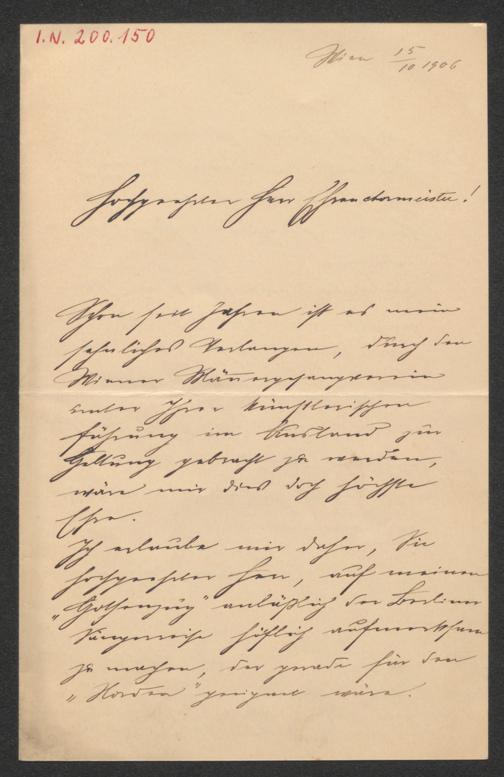 I.N. 200.150
Wien 15/10 1906
Hochgeehrter Herr Ehrenchormeister!
Schon seit Jahren ist es mein
sehnliches Verlangen, durch den
Wiener Männergesangverein
unter Ihrer künstlerischen
Führung im Ausland zur
Geltung gebracht zu werden,
wäre mir dies doch höchste
Ehre.
Ich erlaube mir daher, Sie
hochgeehrter Herr, auf meinen
"Gothenzug" anläßlich der Berliner
Sängerreise höflich aufmerksam
zu machen, der gerade für den
"Norden" geeignet wäre.